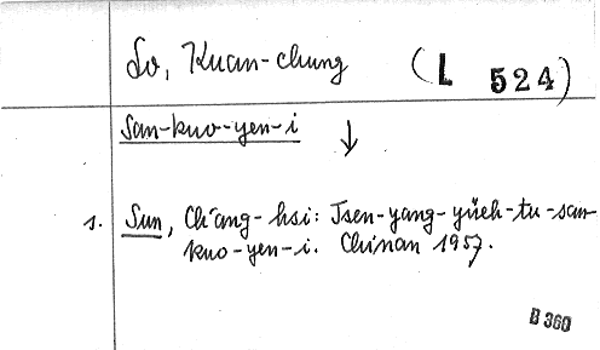 Lo, Kuan-chung (L 524)
San-kuo-yen-i ↓
s. Sun, Ch'ang-hsi: Tsen-yang-yüeh-tu-san-
kuo-yen-i. Chinan 1957.
B 360